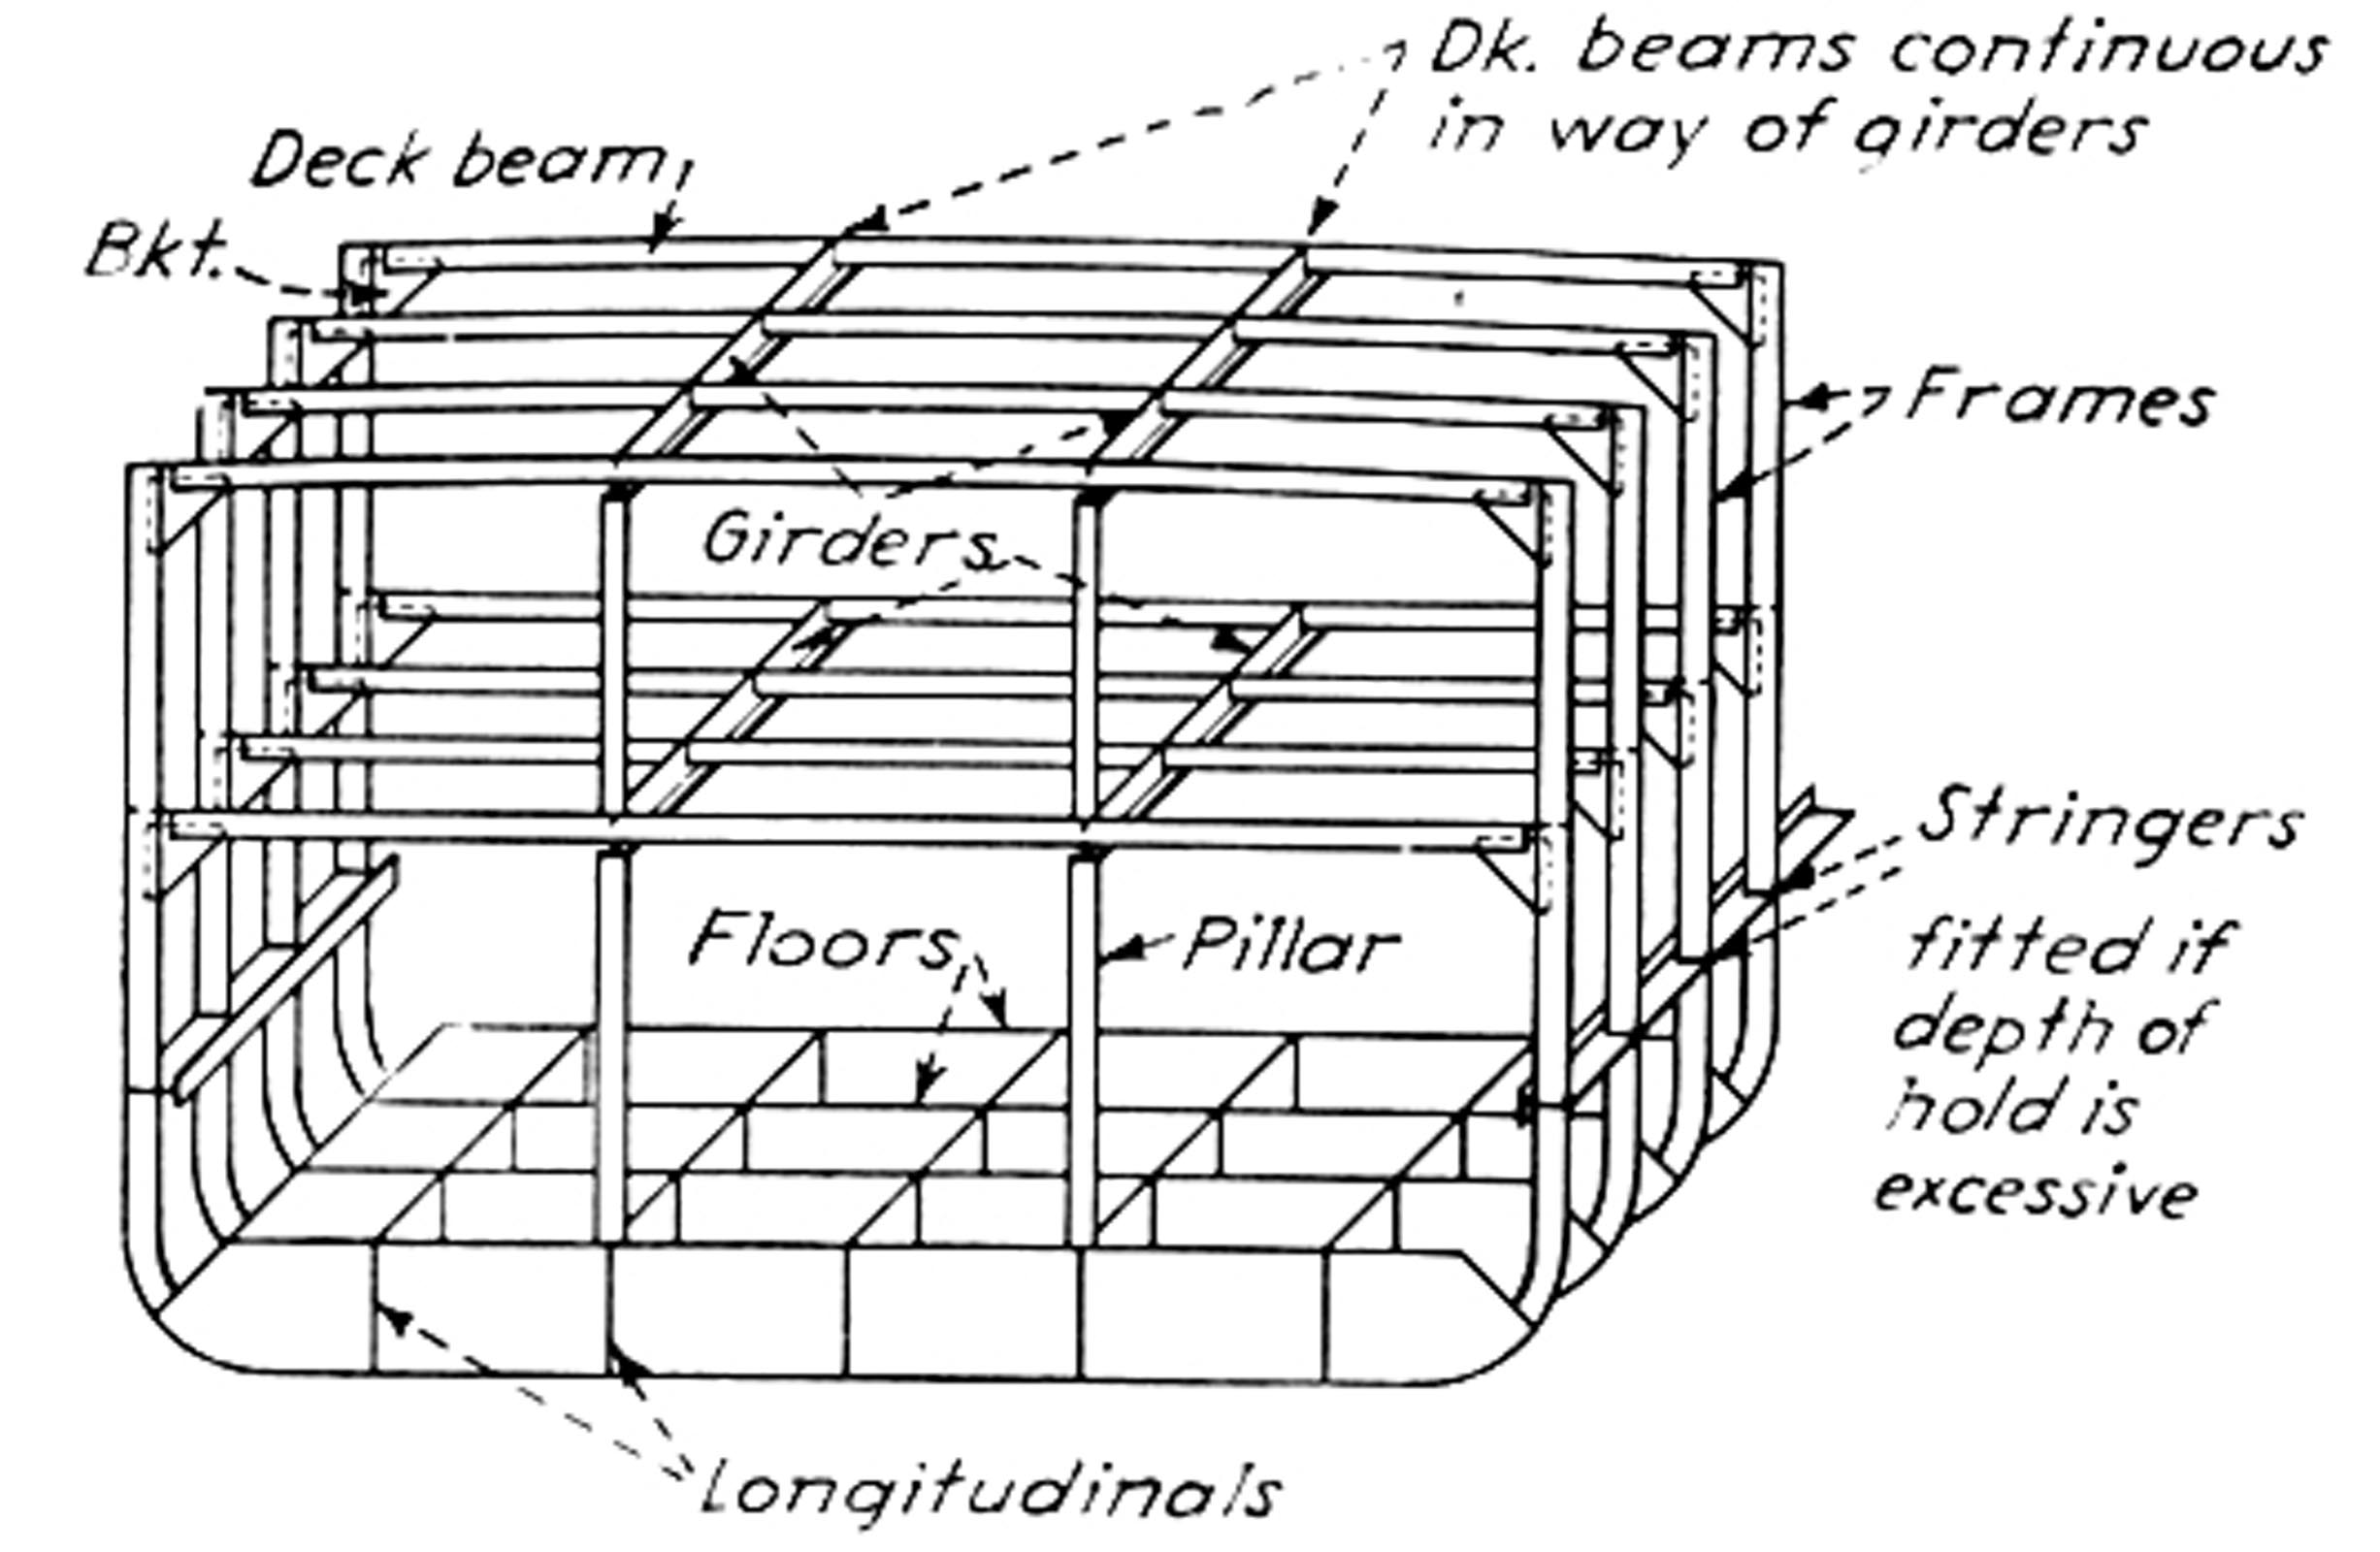 Dk. beams continuous
in way of girders
Deck beam
Bkt.
Frames
Girders
Stringers
fitted if
depth of
hold is
excessive
Floors
Pillar
Longitudinals